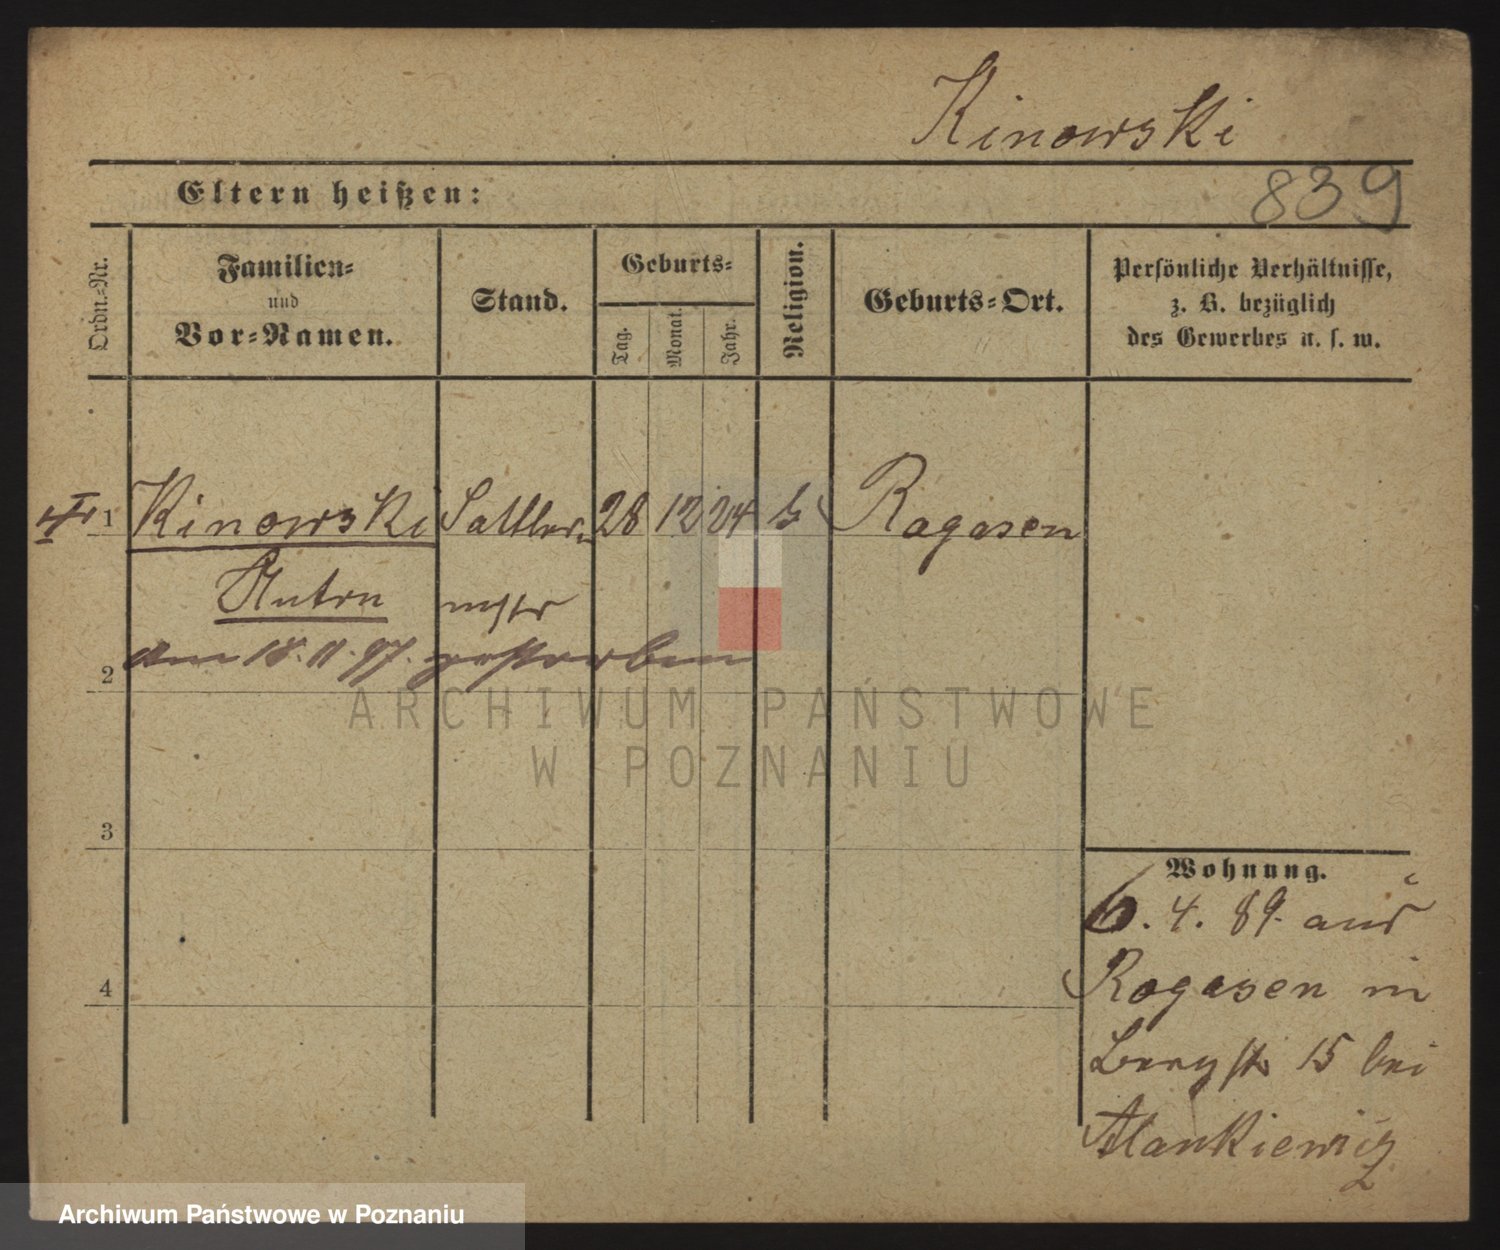 Kinowski
Eltern heißen:
839
Ordn.-Nr.
Familien-
und
Vor-Namen.
Stand.
Geburts-
Tag.
Monat.
Jahr.
Religion.
Geburts-Ort.
Persönliche Verhältnisse,
z. B. bezüglich
des Gewerbes u. s. w.
1 Kinowski Sattler- 28 12 24 k Rogasen
Anton mstr
am 18. 11. 97. gestorben
2
ARCHIWUM PAŃSTWOWE
W POZNANIU
3
Wohnung.
6. 4. 89. aus
4
Rogasen in
Bergstr 15 bei
Stankiewicz
Archiwum Państwowe w Poznaniu